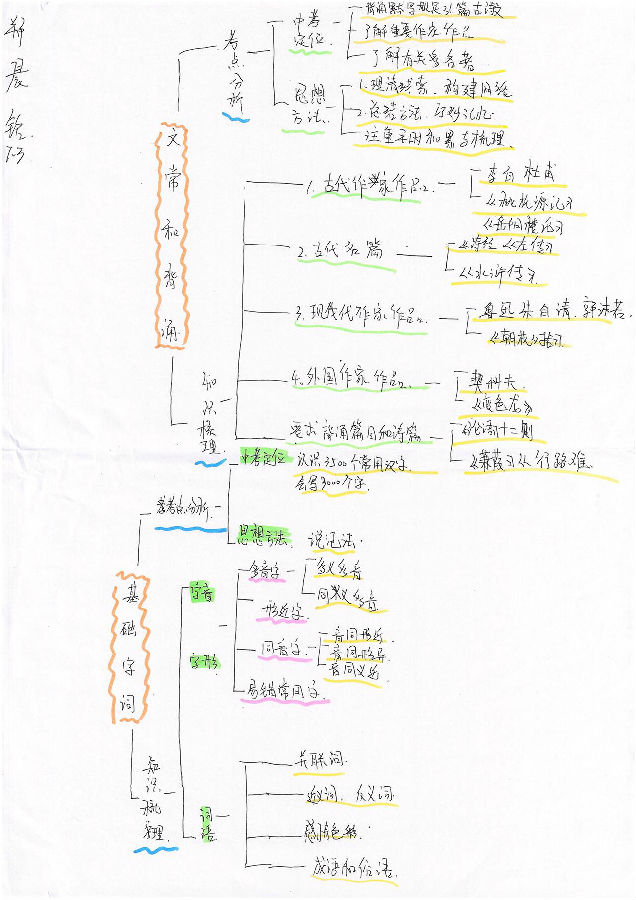 7.3
文常和背诵
考点分析
中考定位
了解重要作家作品
了解有关参各者
思想方法
1.理清线索，构建网络
2.总结方法，巧妙记忆
注重平时积累与梳理
知识梳理
1.古代作家作品
李白 杜甫
《桃花源记》
《岳阳楼记》
2.古代名篇
《诗经》《左传》
《水浒传》
3.现代作家作品
鲁迅 朱自清 郭沫若
《朝花夕拾》
4.外国作家作品
契科夫
《变色龙》
要求背诵篇目和诗篇
《论语》十二则
《蒹葭》《行路难
基础字词
考点分析
中考定位
认识3500个常用汉字
会写3000个字
思想方法
说记法
知识梳理
字音
字形
多音字
多义多音
同义多音
形近字
同音字
音同形近
音同形异
音同义近
易错常用字
词语
关联词
近义词、反义词
感情色彩
成语和俗语